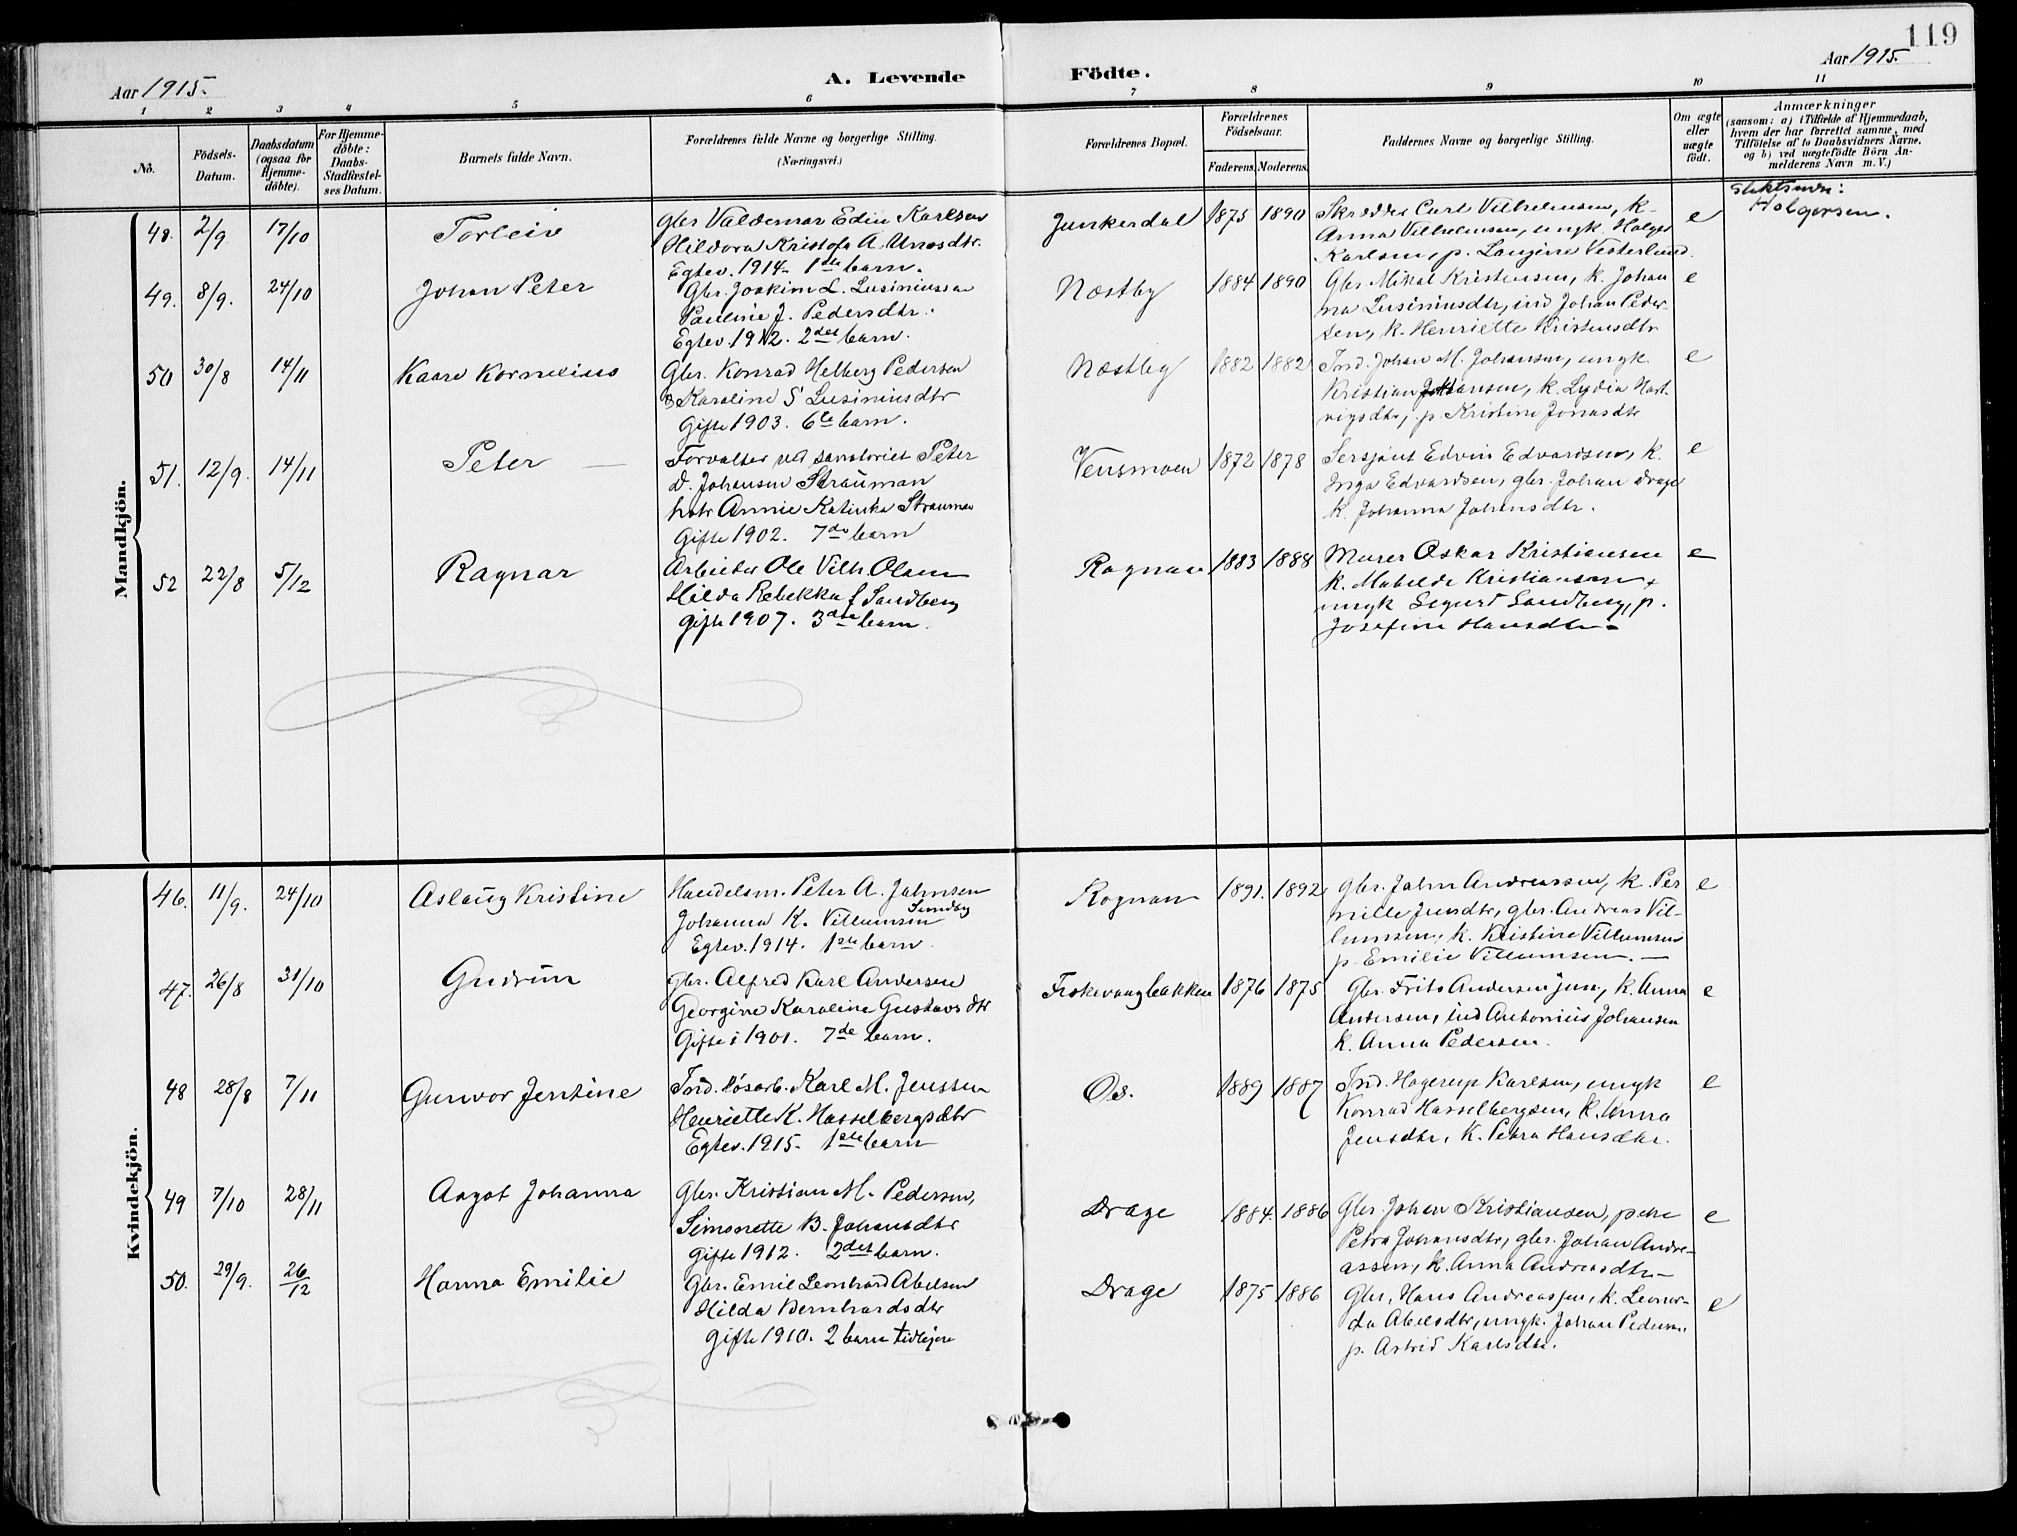 119
Aar 1915.
A. Levende
Födte.
Aar 1915.
1 2 3 4 5 6 7 8 9 10 11
No.
Födsels-
Datum.
Daabsdatum
(ogsaa for
Hjemme-
döbte).
For Hjemme-
döbte:
Daabs-
Stadfæstel-
ses Datum.
Barnets fulde Navn.
Forældrenes fulde Navne og borgerlige Stilling.
(Næringsvei.)
Forældrenes Bopæl.
Forældrenes
Födselsaar.
Faderens. Moderens.
Faddernes Navne og borgerlige Stilling.
Om ægte
eller
uægte
födt.
Anmærkninger
(saasom: a) i Tilfælde af Hjemmedaab,
hvem der har forrettet samme, med
Tilföielse af to Daabsvidners Navne,
og b) ved uægtefödte Börn An-
melderens Navn m. V.)
Mandkjön.
48. 2/9 17/10
Torleiv
Gbr Valdemar Edin Karlsen
Hildora Kristofa A. Unasdtr.
Egtev. 1914. 1ste barn.
Junkerdal
1875 1890
Skrædder Curt Vilhelmsen, k.
Anna Vilhelmsen, ungk. Holger
Karlsen, p. Laugine Vesterlund.
e
Slektsnavn:
Holgersen.
49. 8/9. 24/10
Johan Peter
Gbr. Joakim L. Lusiniussen
Pauline J. Pedersdtr.
Egtev. 1912. 2det barn.
Næstby
1884 1890
Gbr. Mikal Kristensen, k. Johan
na Lusiniusdtr, ind Johan Peder-
sen, k. Henriette Kristensdtr
e
50 30/8 14/11
Kaare Kornelius
Gbr. Konrad Helberg Pedersen
Karoline S Lusiniusdtr
Gifte 1903. 6te barn.
Næstby
1882 1882
Ind. Johan M. Johansen, ungk.
Kristian Johansen, k. Lydia Hart-
vigsdtr, p. Kristine Jonasdtr
e
51. 12/9. 14/11
Peter
Forvalter ved sanatoriet Peter
D. Johansen Strauman
hstr Annie Katinka Strauman
Gifte 1902. 7de barn
Vensmoen
1872 1878
Sersjant Edvin Edvardsen, k.
Inga Edvardsen, gbr. Johan Drage
k. Johanna Johansdtr.
e
52 22/8 5/12
Ragnar
Arbeider Ole Vilh. Olsen
Hilda Rebekka f Sandberg
gifte 1907. 3die barn.
Rognan
1883 1888
Murer Oskar Kristiansen
k. Mathilde Kristiansen,
ungk Sigurd Sandberg, p.
Josefine Hansdtr.
e
Kvindekjön.
46. 11/9. 24/10
Aslaug Kristine
Handelsm. Peter A. Jahnsen
Sundby
Johanna K. Villumsen
Egtev. 1914. 1ste barn.
Rognan
1891. 1892
Gbr. Jahn Andreassen, k. Per
nille Jensdtr, gbr. Andreas Vil-
lumsen, k. Kristine Villumsen
p. Emilie Villumsen.
e
47. 26/8 31/10
Gudrun
Gbr. Alfred Karl Andersen
Georgine Karoline Gustavsdtr
Gifte i 1901. 7de barn.
Fiskevaagbakken
1876 1875
Gbr. Frits Andersen jun., k. Anna
Andersen, ind Antonius Johansen
k. Anna Pedersen.
e
48 28/8 7/11
Gunvor Jentine
Ind. løsarb. Karl M. Jenssen
Henriette K. Hasselbergsdtr
Egtev. 1915. 1ste barn
Os.
1889 1887
Ind. Hagerup Karlsen, ungk
Konrad Hasselbergsen, k. Anna
Jensdtr, k. Petra Hansdtr.
e
49 7/10 28/11
Aagot Johanna
Gbr. Kristian M. Pedersen,
Simonette B. Johansdtr
Gifte 1912. 2det barn.
Drage
1884. 1886
Gbr. Johan Kristiansen, pike
Petra Johansdtr, gbr. Johan Andre-
assen, k. Anna Andreasdtr
e
50. 29/9. 26/12
Hanna Emilie
Gbr. Emil Leonhard Abelsen
Hilda Bernhardsdtr
Gifte 1910. 2 barn tidligere
Drage
1875 1886
Gbr. Hans Andreassen, k. Leonar-
da Abelsdtr, ungk. Johan Pedersen,
p. Astrid Karlsdtr.
e